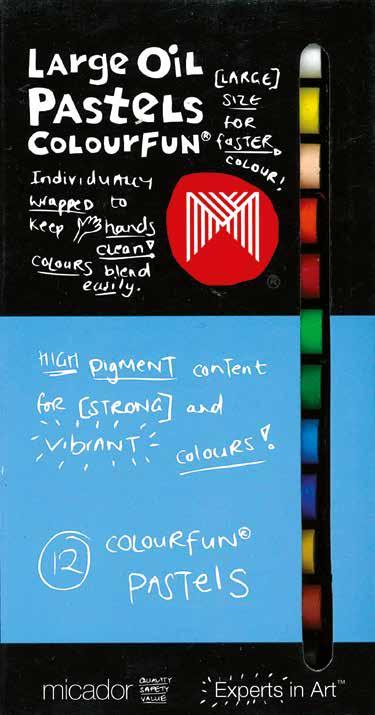 Large Oil
Pastels
ColourFun®
[LARGE]
SIZE
for
faster
colour!
Individually
wrapped to
keep hands
clean!
colours blend
easily.
®
HIGH pigment content
for [STRONG] and
vibrant
colours!
12 COLOURFUN®
PASTELS
micador
QUALITY
SAFETY
VALUE
Experts in Art™